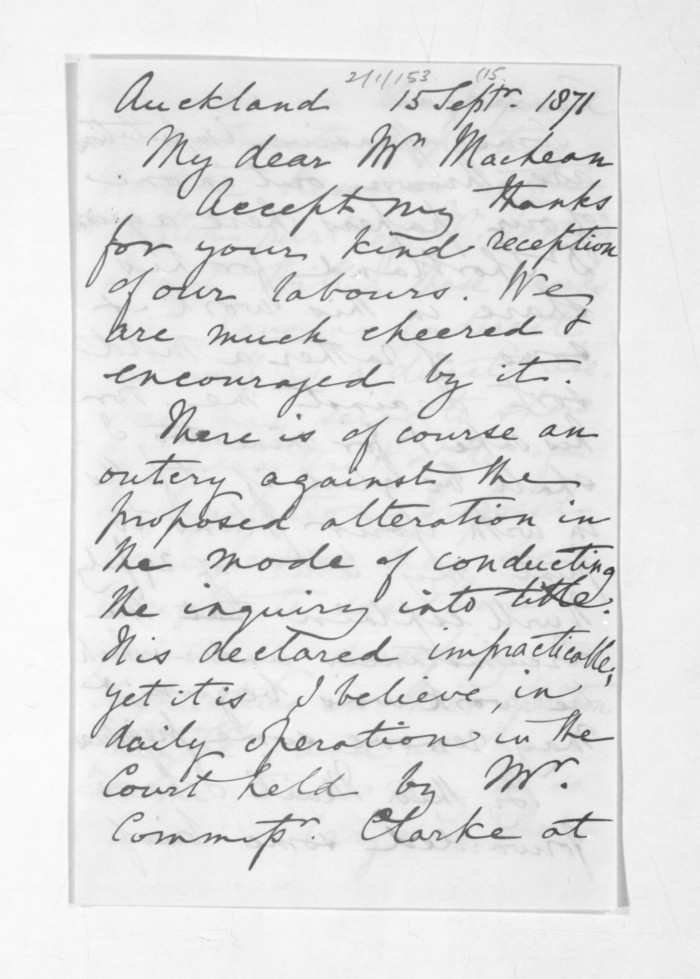 2/1/153 (15
Auckland 15 Septr. 1871
My dear Mr Maclean
Accept my thanks
for your kind reception
of our labours. We
are much cheered &
encouraged by it.
There is of course an
outcry against the
proposed alteration in
the mode of conducting
the inquiry into title.
It is declared impracticable;
yet it is, I believe, in
daily operation in the
Court held by Mr.
Commissr. Clarke at